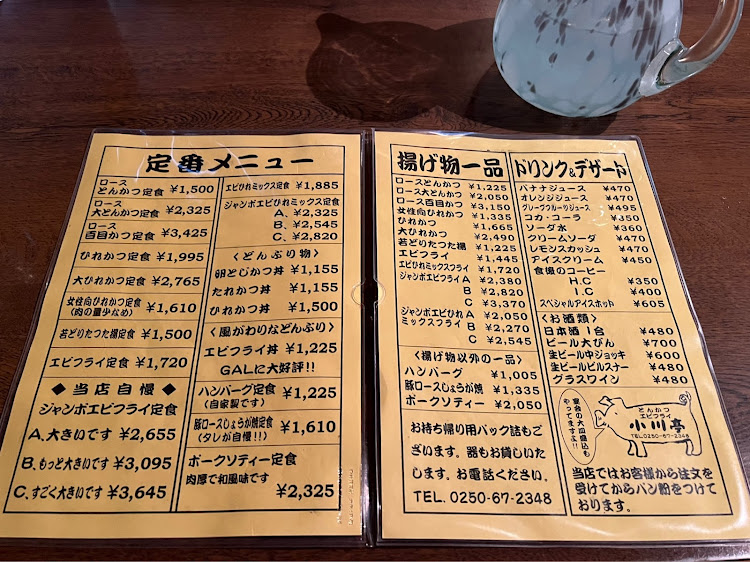 定番メニュー
ロース
とんかつ定食 ¥1,500
ロース
大とんかつ定食 ¥2,325
ロース
百目かつ定食 ¥3,425
ひれかつ定食 ¥1,995
大ひれかつ定食 ¥2,765
女性向ひれかつ定食
(肉の量少なめ) ¥1,610
若どりたつた揚定食 ¥1,500
エビフライ定食 ¥1,720
◆当店自慢◆
ジャンボエビフライ定食
A.大きいです ¥2,655
B.もっと大きいです ¥3,095
C.すごく大きいです ¥3,645
エビひれミックス定食 ¥1,885
ジャンボエビひれミックス定食
A. ¥2,325
B. ¥2,545
C. ¥2,820
〈どんぶり物〉
卵とじかつ丼 ¥1,155
たれかつ丼 ¥1,155
ひれかつ丼 ¥1,500
〈風がわりなどんぶり〉
エビフライ丼 ¥1,225
GALに大好評!!
ハンバーグ定食 ¥1,225
(自家製です)
豚ロースしょうが焼定食 ¥1,610
(タレが自慢!!)
ポークソティー定食
肉厚で和風味です
¥2,325
揚げ物一品
ロースとんかつ ¥1,225
ロース大とんかつ ¥2,050
ロース百目かつ ¥3,150
女性向ひれかつ ¥1,335
ひれかつ ¥1,665
大ひれかつ ¥2,490
若どりたつた揚 ¥1,225
エビフライ ¥1,445
エビひれミックスフライ ¥1,720
ジャンボエビフライ A ¥2,380
B ¥2,820
C ¥3,370
ジャンボエビひれ A ¥2,050
ミックスフライ B ¥2,270
C ¥2,545
〈揚げ物以外の一品〉
ハンバーグ ¥1,005
豚ロースしょうが焼 ¥1,335
ポークソティー ¥2,050
お持ち帰り用パック詰もご
ざいます。器もお貸しいた
します。お電話ください。
TEL. 0250-67-2348
ドリンク&デザート
バナナジュース ¥470
オレンジジュース ¥470
グレープフルーツジュース ¥495
コカ・コーラ ¥350
ソーダ水 ¥360
クリームソーダ ¥470
レモンスカッシュ ¥470
アイスクリーム ¥450
食後のコーヒー
H.C ¥350
I.C ¥400
スペシャルアイスホット ¥605
〈お酒類〉
日本酒1合 ¥480
ビール大びん ¥700
生ビール中ジョッキ ¥600
生ビールピルスナー ¥480
グラスワイン ¥480
宴会の大皿盛込も
やってますよ!!
とんかつ
エビフライ
小川亭
TEL.0250-67-2348
当店ではお客様から注文を
受けてからパン粉をつけて
おります。